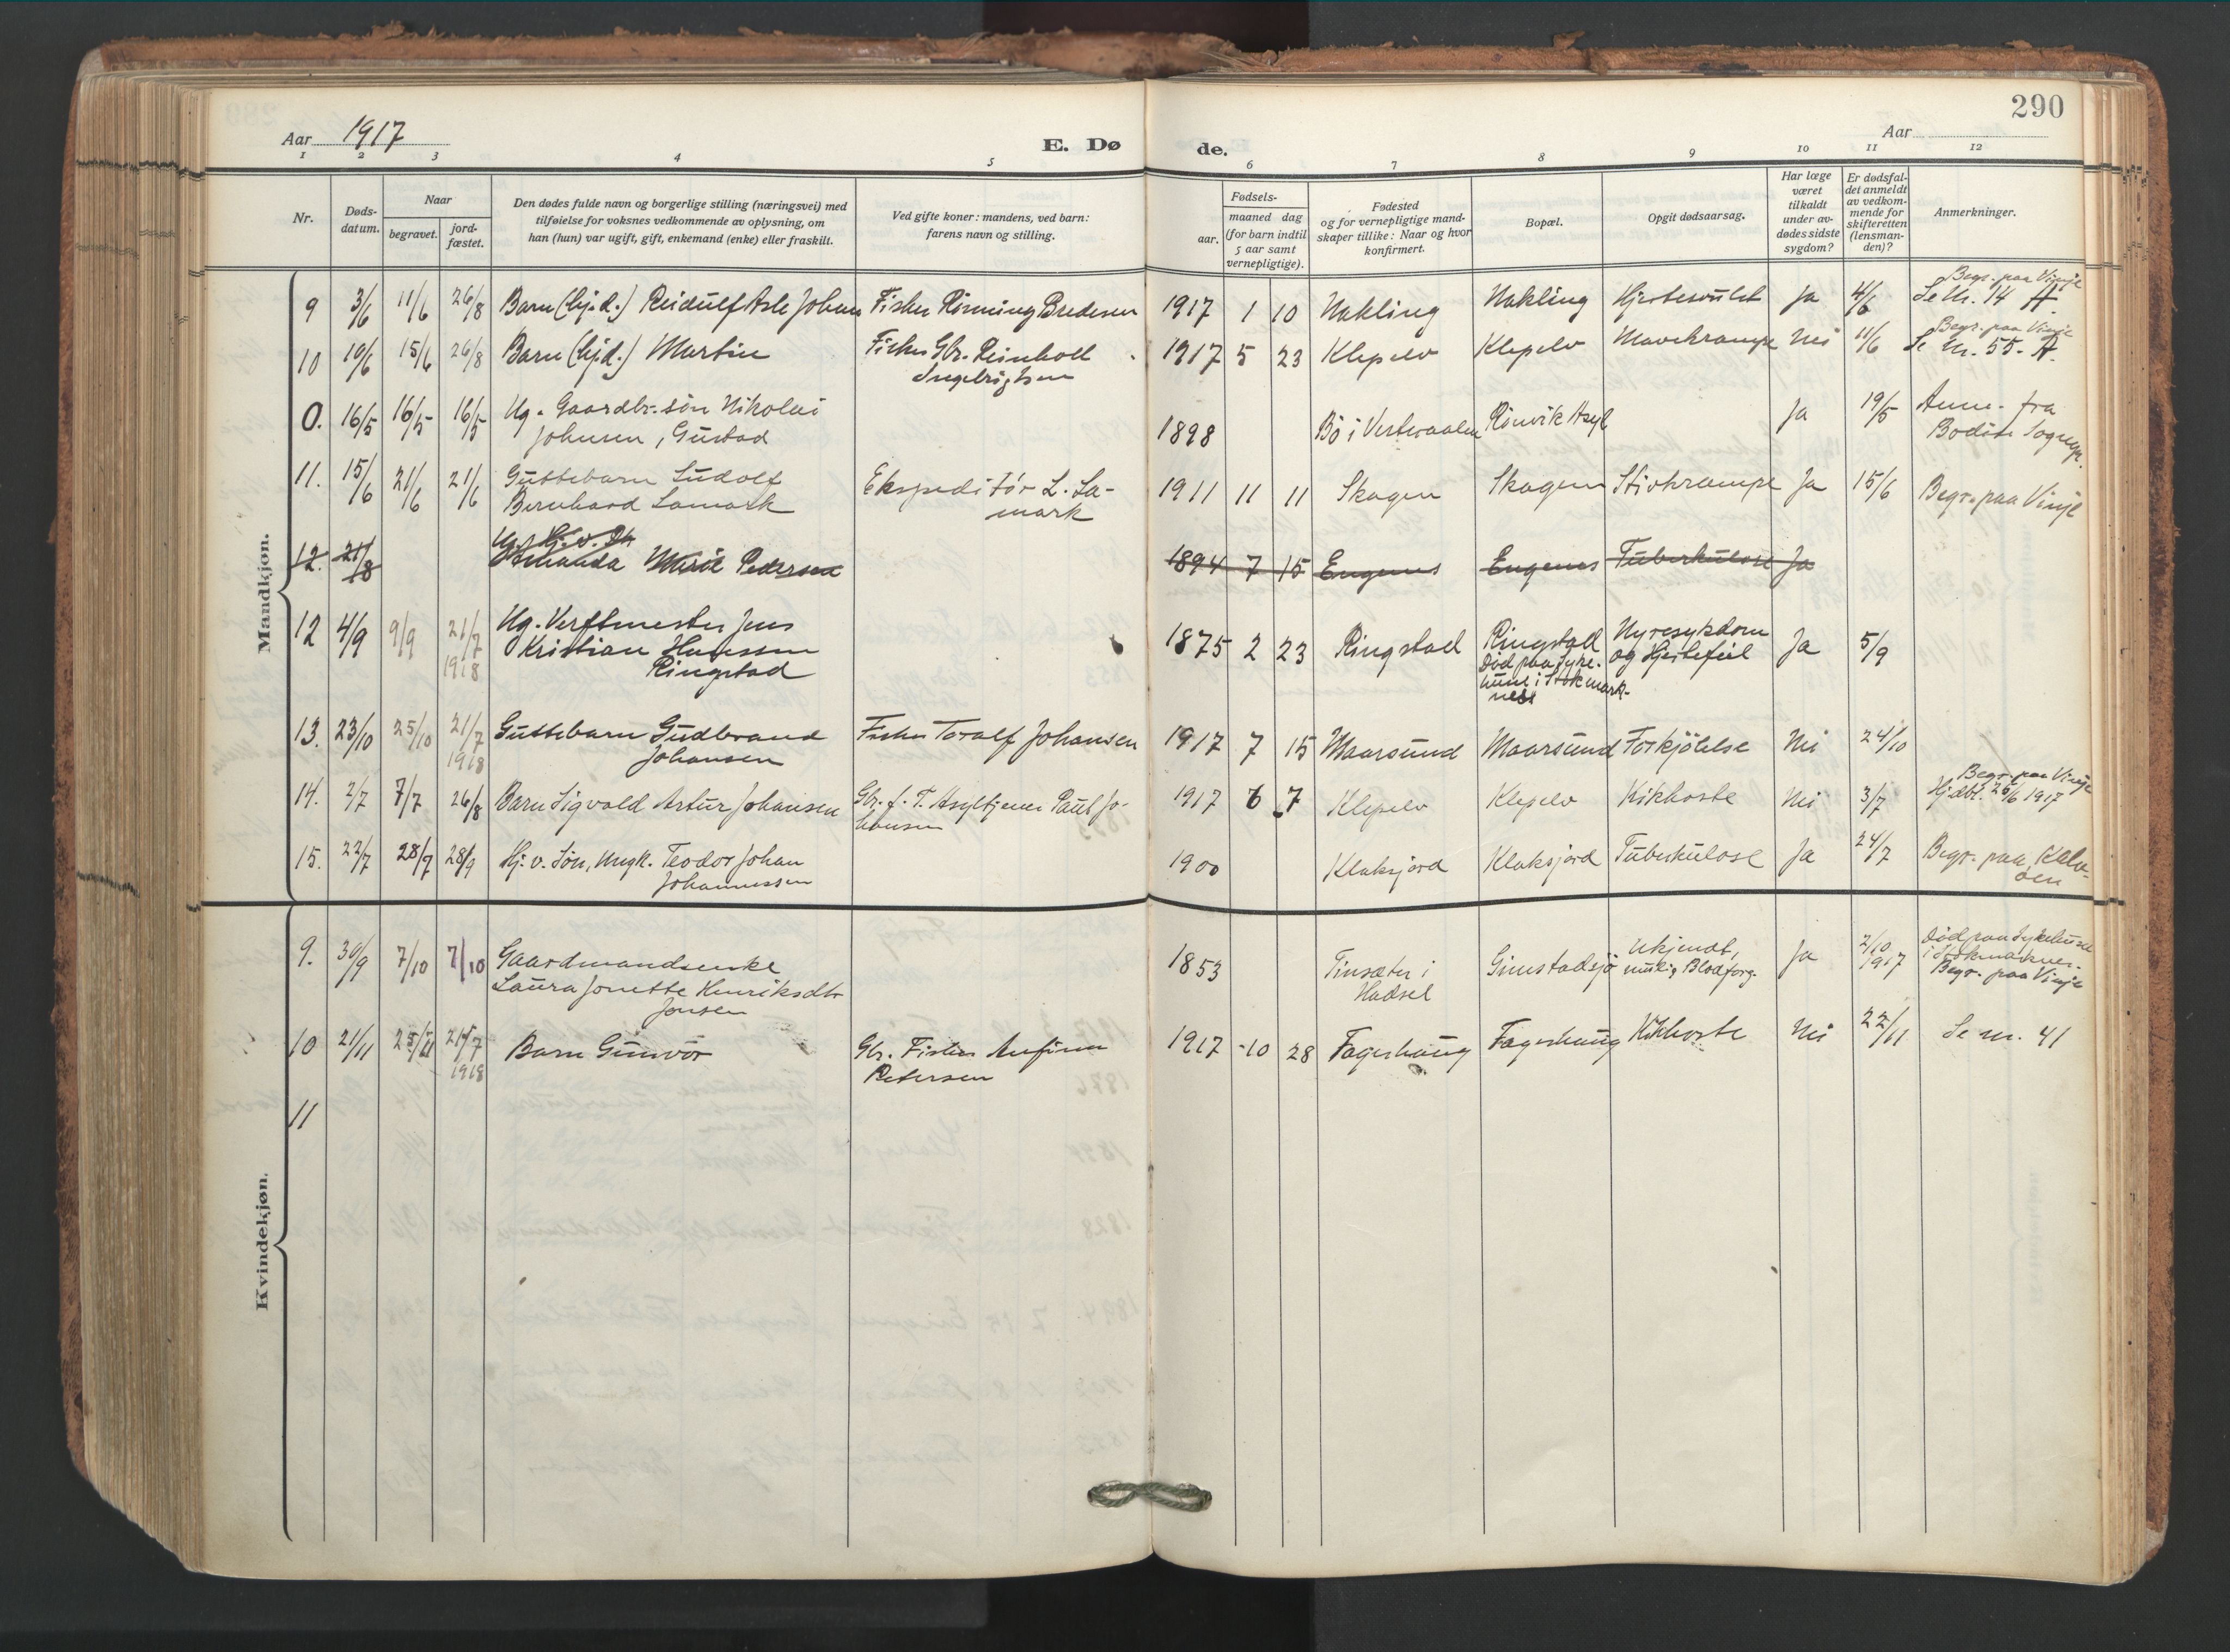 290
Aar 1917
E. Dø
de.
Aar
1 2 3 4 5 6 7 8 9 10 11 12
Nr.
Døds-
datum.
Naar
begravet.
jord-
fæstet.
Den dødes fulde navn og borgerlige stilling (næringsvei) med
tilføielse for voksnes vedkommende av oplysning, om
han (hun) var ugift, gift, enkemand (enke) eller fraskilt.
Ved gifte koner: mandens, ved barn:
farens navn og stilling.
Fødsels-
aar.
maaned dag
(for barn indtil
5 aar samt
vernepligtige).
Fødested
og for vernepligtige mand-
skaper tillike: Naar og hvor
konfirmert.
Bopæl.
Opgit dødsaarsag.
Har læge
været
tilkaldt
under av-
dødes sidste
sygdom?
Er dødsfal-
det anmeldt
av vedkom-
mende for
skifteretten
(lensman-
den)?
Anmerkninger.
Mandkjøn.
Begr. paa Vinje
9 3/6 11/6 26/8 Barn (hj.d.) Reidulf Asle Johan Fisker Rönning Bredesen 1917 1 10 Nakling Nakling Hjertesvulst Ja 4/6 Se Nr. 14 A.
Begr. paa Vinje
10 10/6 15/6 26/8 Barn (hj.d.) Martin Fisker Gbr. Reinholt 1917 5 23 Klepelv Klepelv Mavekrampe Nei 11/6 Se Nr. 55. A.
Ingebrigtsen
0. 16/5 16/5 16/5 Ug. Gaardbr.sön Nikolai 1898 Bö i Vesteraalen Rönvik Asyl Ja 19/5 Anm. fra
Johnsen, Gustad Bodin Sognepr.
11. 15/6 21/6 21/6 Guttebarn Ludolf Ekspeditör L. La- 1911 11 11 Skagen Skagen Stivkrampe Ja 15/6 Begr. paa Vinje
Bernhard Lamark mark
12. 21/8 Marie Pedersen 1894 7 15 Engenes Engenes Tuberkulose Ja
12 4/9 9/9 21/7 1918 Ug. Verftmester Jens 1875 2 23 Ringstad Ringstad Nyresykdom Ja 5/9
Kristian Hanssen Död paa Syke- og Hjertefeil
Ringstad huset i Stokmark-
nes
13. 23/10 25/10 21/7 1918 Guttebarn Gudbrand Fisker Toralf Johansen 1917 7 15 Maarsund Maarsund Forkjölelse Nei 24/10
Johansen
Begr. paa Vinje
14. 2/7 7/7 26/8 Barn Sigvald Artur Johansen Gbr. f. T. Asyltjener Paul Jo- 1917 6 7 Klepelv Klepelv Kikhoste Nei 3/7 Hjdbt. 25/6 1917
hansen
15. 22/7 28/7 28/9 Hj. v. Sön, Ungk. Teodor Johan 1900 Klaksjord Klaksjord Tuberkulose Ja 24/7 Begr. paa Kalv-
Johannessen öen
Kvindekjøn.
9. 30/9 7/10 7/10 Gaardmandsenke 1853 Tinsæter i Gimstadsjö Ukjendt, Ja 2/10 1917 Död paa Sykehuset
Laura Jonette Henriksdtr Hadsel mulig Blodforg. i Stokmarknes.
Jonsen Begr. paa Vinje
10 21/11 25/11 21/7 1918 Barn Gunvör Gbr. Fisker Anfinn 1917 10 28 Fagerhaug Fagerhaug Kikhoste Nei 22/11 Se nr. 41
Petersen
11